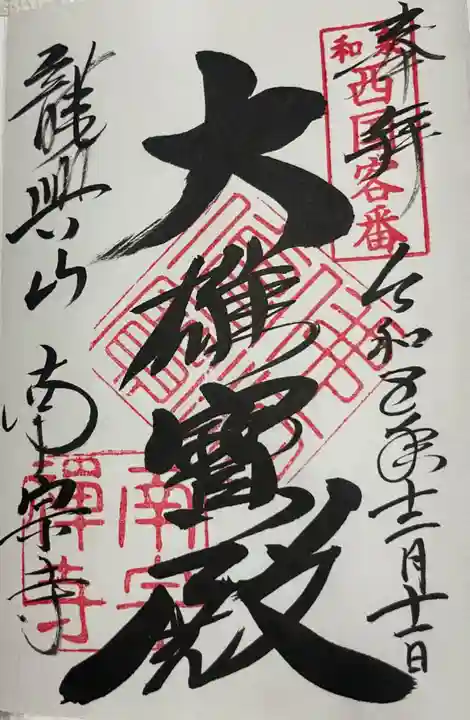 奉拝
和泉
西国客番
令和五年十二月十一日
大雄寶殿
龍興山 南宗寺
南宗
禪寺